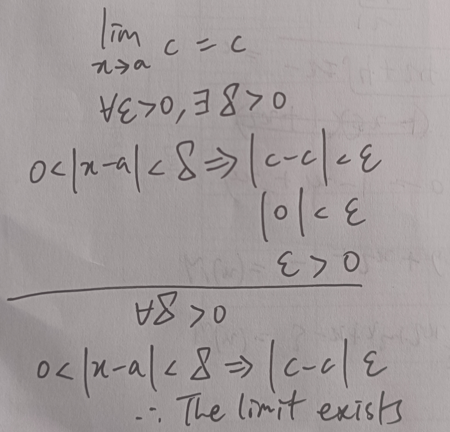 lim
x→a c = c
∀ε>0, ∃ δ>0
0<|x-a|<δ ⇒ |c-c|<ε
|0|<ε
ε>0
∀δ>0
0<|x-a|<δ ⇒ |c-c| ε
∴ The limit exists